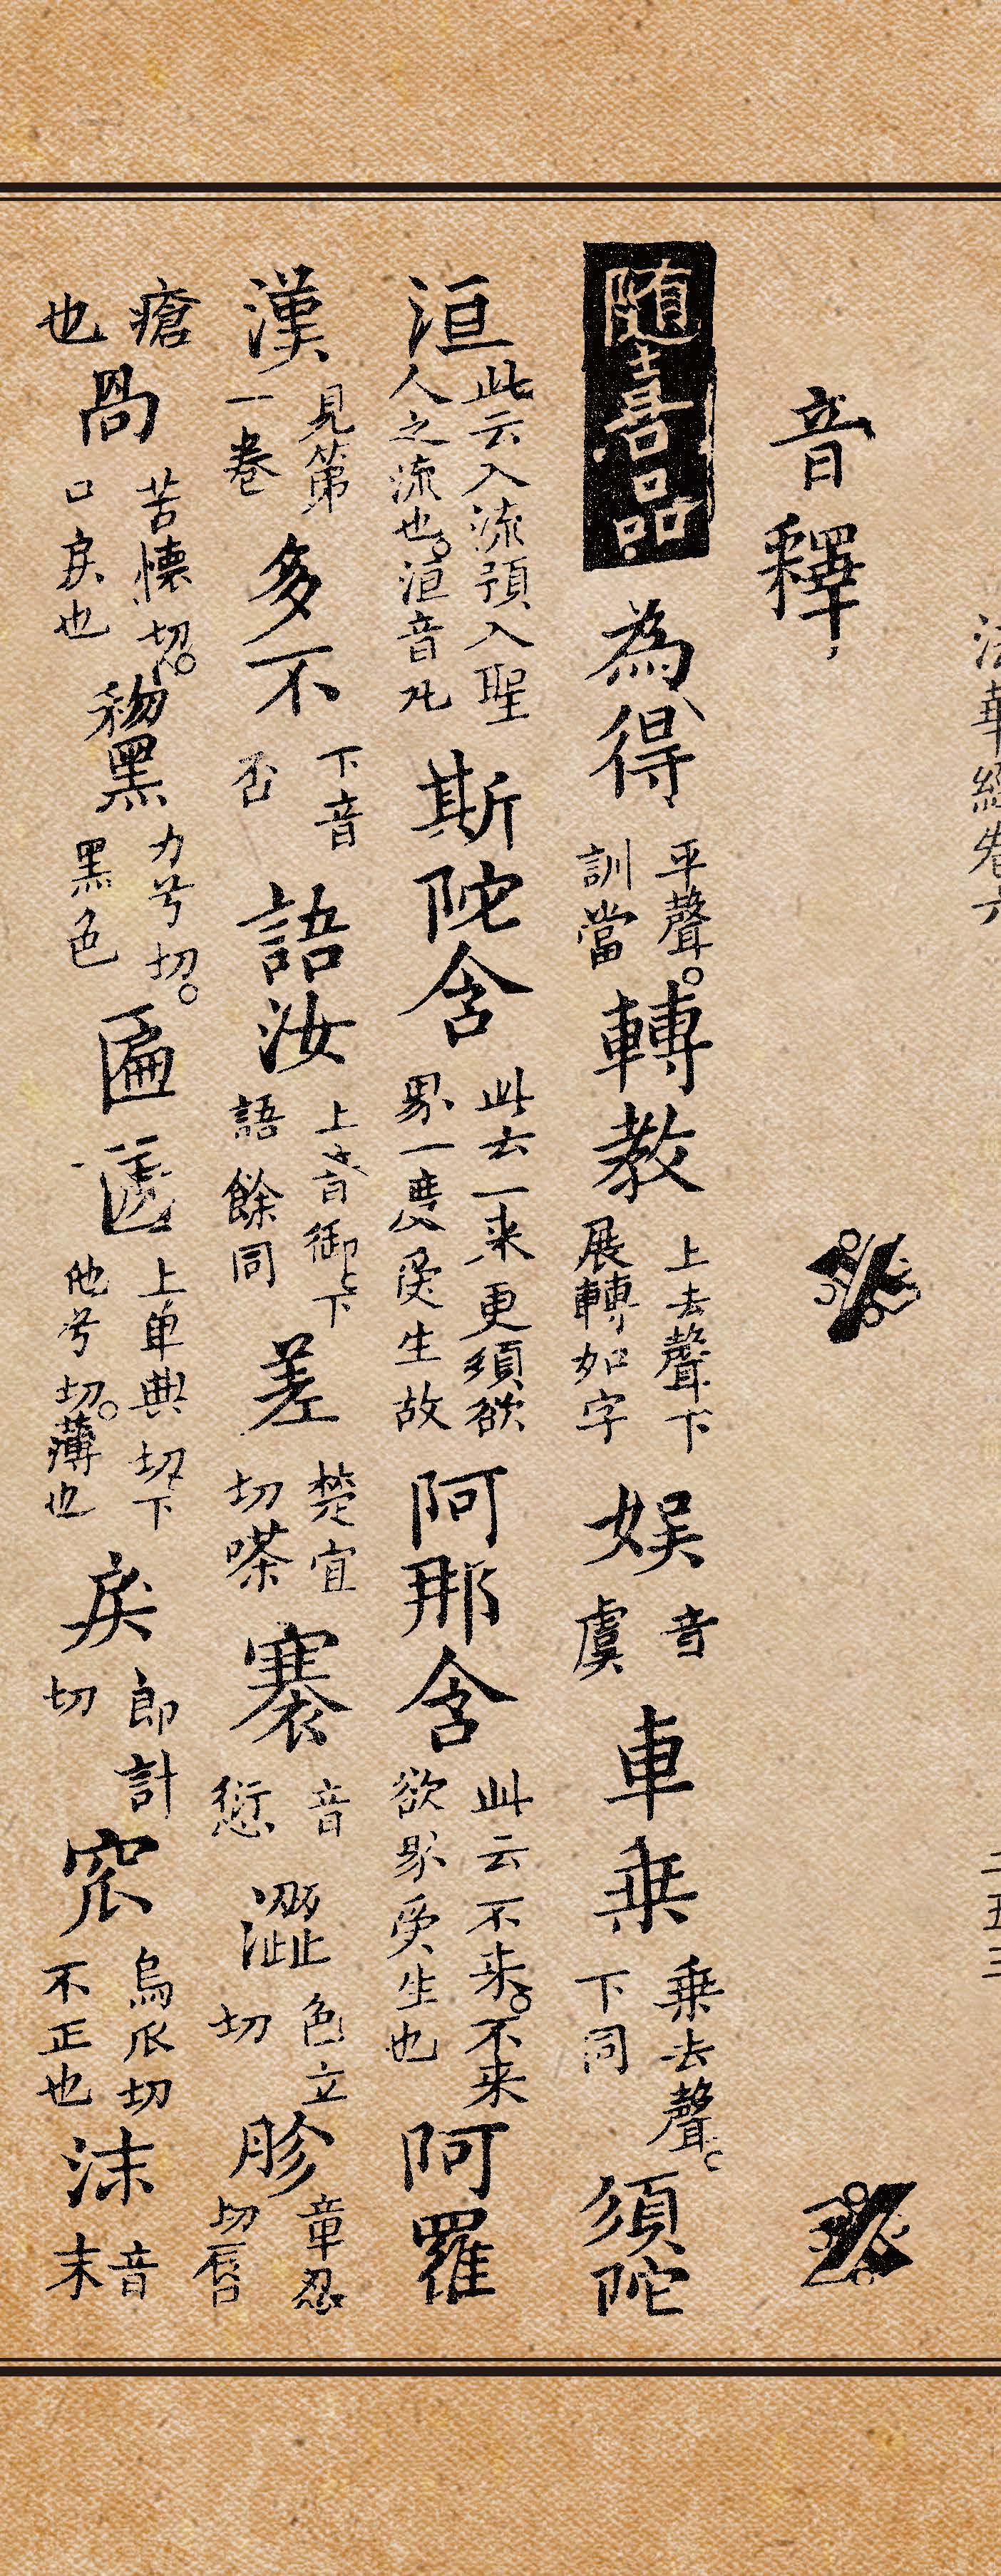 法華經卷六
二五三
音釋
隨喜品 為得 平聲。訓當 轉教 上去聲下展轉如字 娛 音虞 車乘 乗去聲。下同 須陀
洹 此云入流預入聖人之流也。洹音凡 斯陀含 此云一来更須欲界一度受生故 阿那含 此云不来。不来欲界受生也 阿羅
漢 見第一卷 多不 下音否 語汝 上音御下語餘同 差 楚宜切嗏 褰 音愆 澀 色立切 胗 章忍切唇
瘡也 咼 苦懷切。口戾也 黧 力兮切。黑色 匾㔸 上毕典切下他兮切。薄也 戾 郎計切 窊 烏爪切不正也 沫 音末